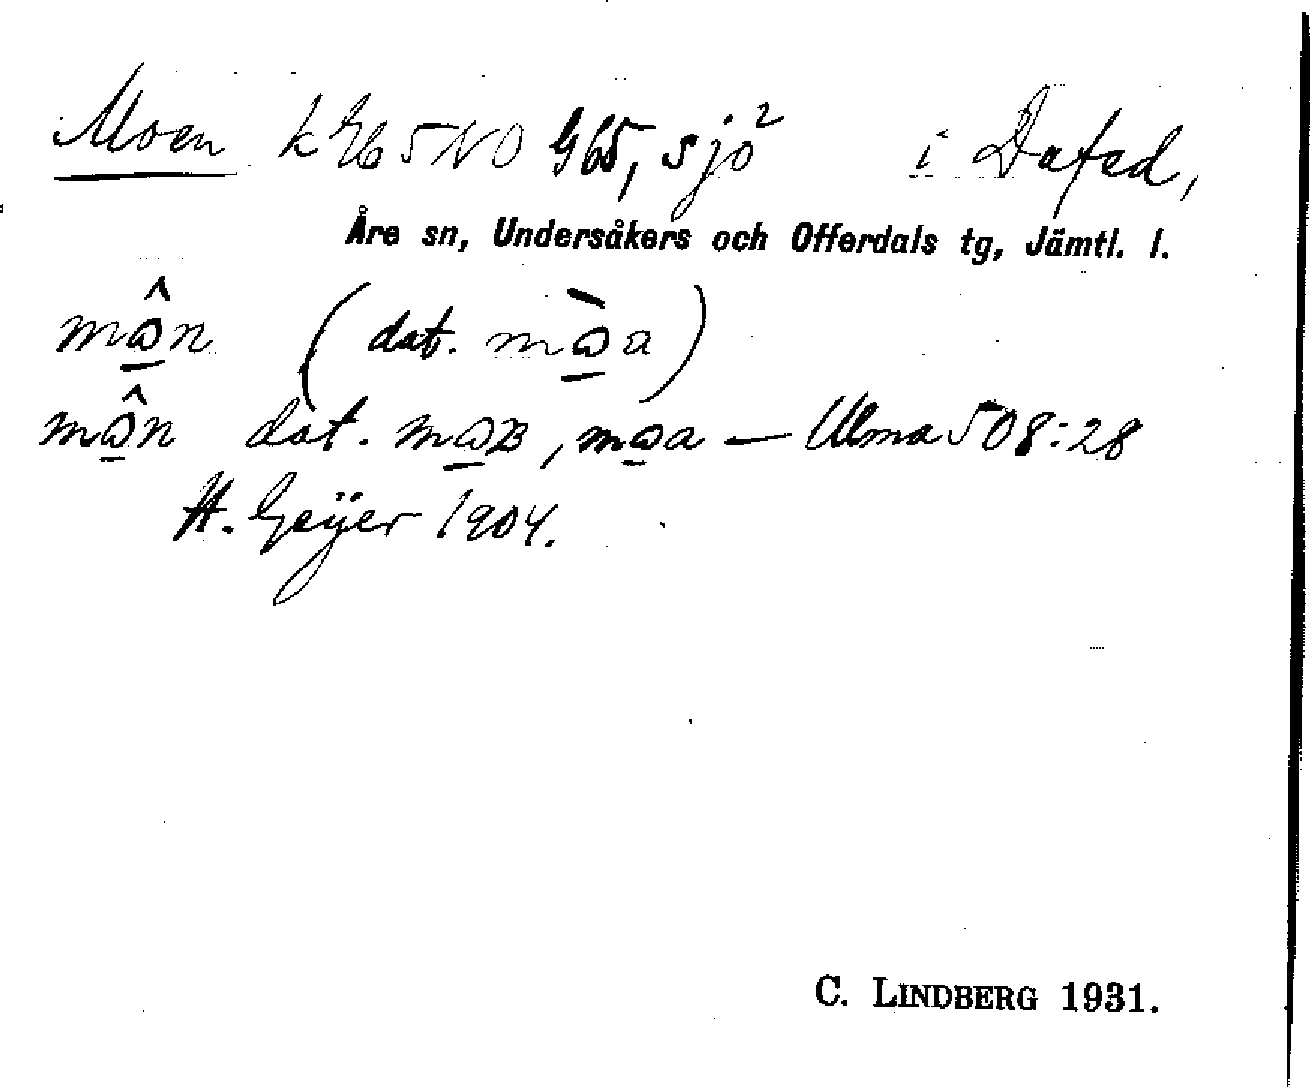 Moen k 965 NO 965, sjö² i Dufed,
Åre sn, Undersåkers och Offerdals tg, Jämtl. l.
(dat.
dat. — Ulma 508:28
H. Geijer 1904.
C. LINDBERG 1931.